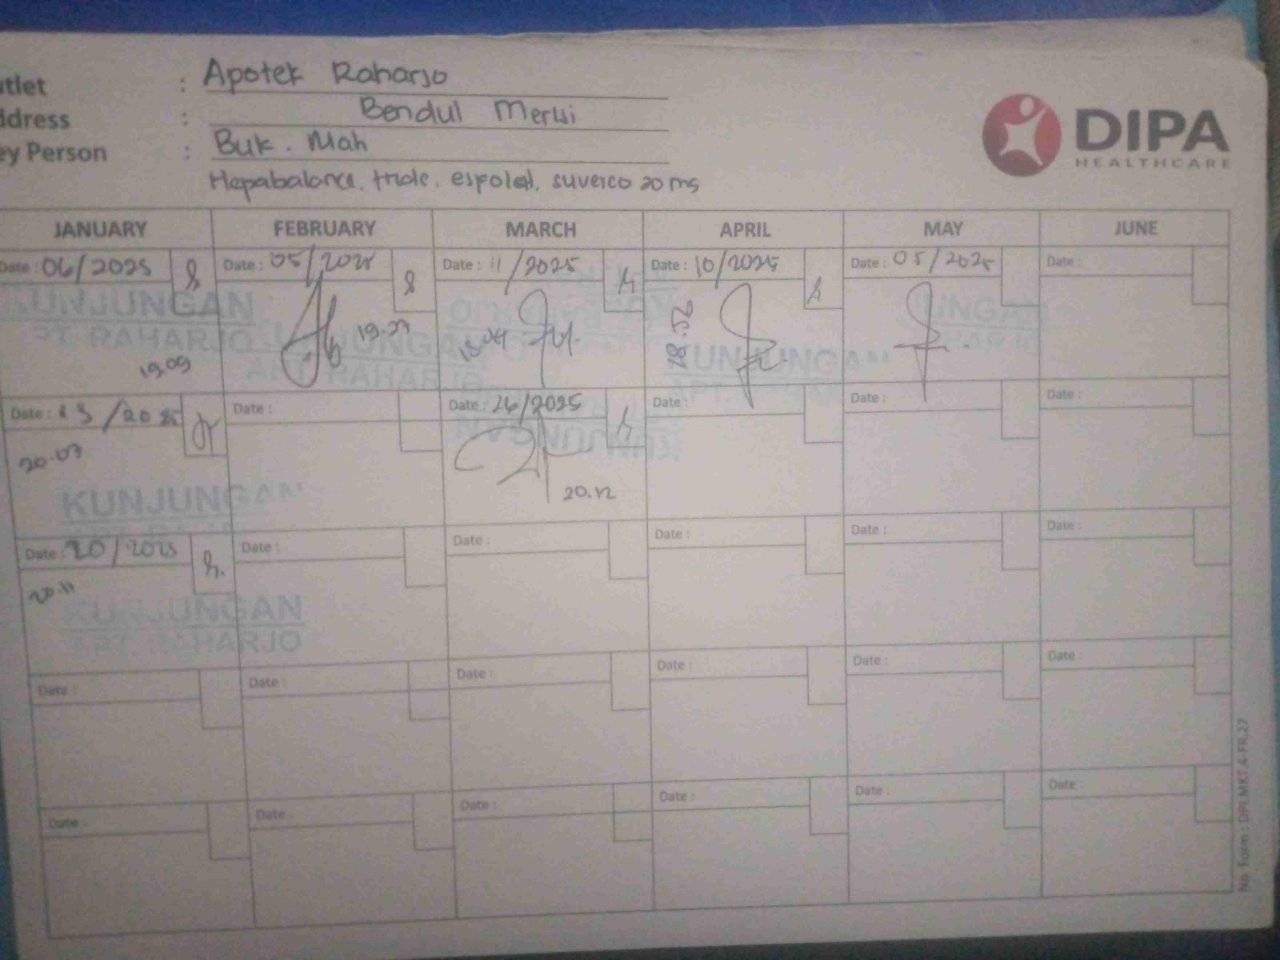 utlet : Apotek Raharjo
ddress : Bendul Merisi
ey Person : Buk. Mah
Hepabalance, triole, espolal, suverco 20 mg
DIPA
HEALTHCARE
JANUARY FEBRUARY MARCH APRIL MAY JUNE
Date : 06/2025 Date : 05/2025 Date : 11/2025 Date : 10/2025 Date : 05/2025 Date :
KUNJUNGAN
PT. RAHARJO
19.09
19.27
KUNJUNGAN
APT RAHARJO
KUNJUNGAN
UNGAN
Date : 13/2025 Date : Date : 26/2025 Date : Date : Date :
20.07
20.12
KUNJUNGAN
Date : 20/2025 Date : Date : Date : Date : Date :
20.11
KUNJUNGAN
PT. RAHARJO
Date : Date : Date : Date : Date : Date :
Date : Date : Date : Date : Date : Date :
No. Form : DPI.MKT.4-FR.27